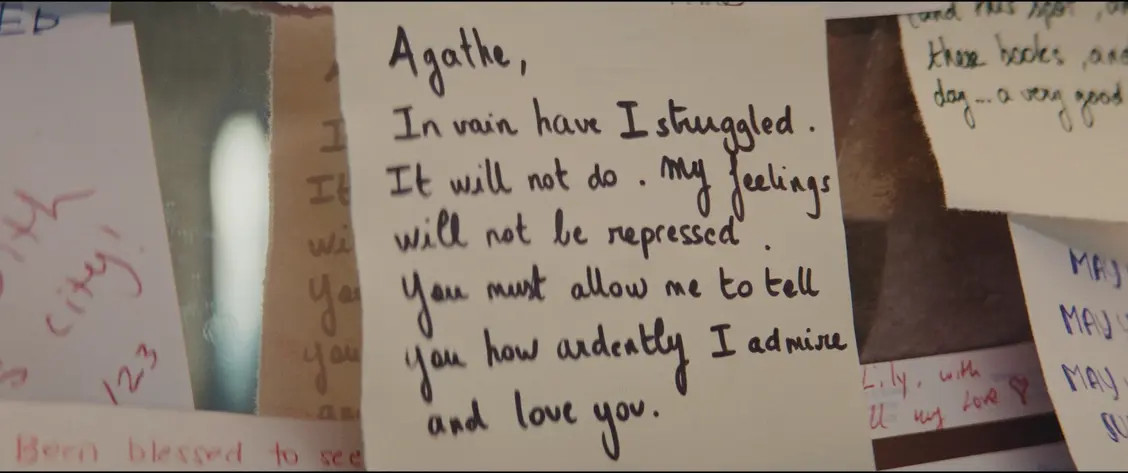 Agathe,
In vain have I struggled.
It will not do. My feelings
will not be repressed.
You must allow me to tell
you how ardently I admire
and love you.
city,
123
Been blessed to see
(and this spot, an
these books, and
day... a very good
Lily, with
ll my love
MAY
MAY
MAY